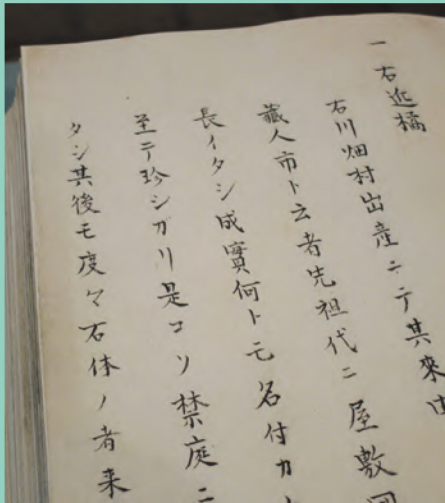 一右近橘
右川畑村出産ニテ其來由
藏人市ト云者先祖代ニ屋敷
長イタシ成實何トモ名付カ
至テ珍シガリ是コソ禁庭ニ
タシ其後モ度々右体ノ者来